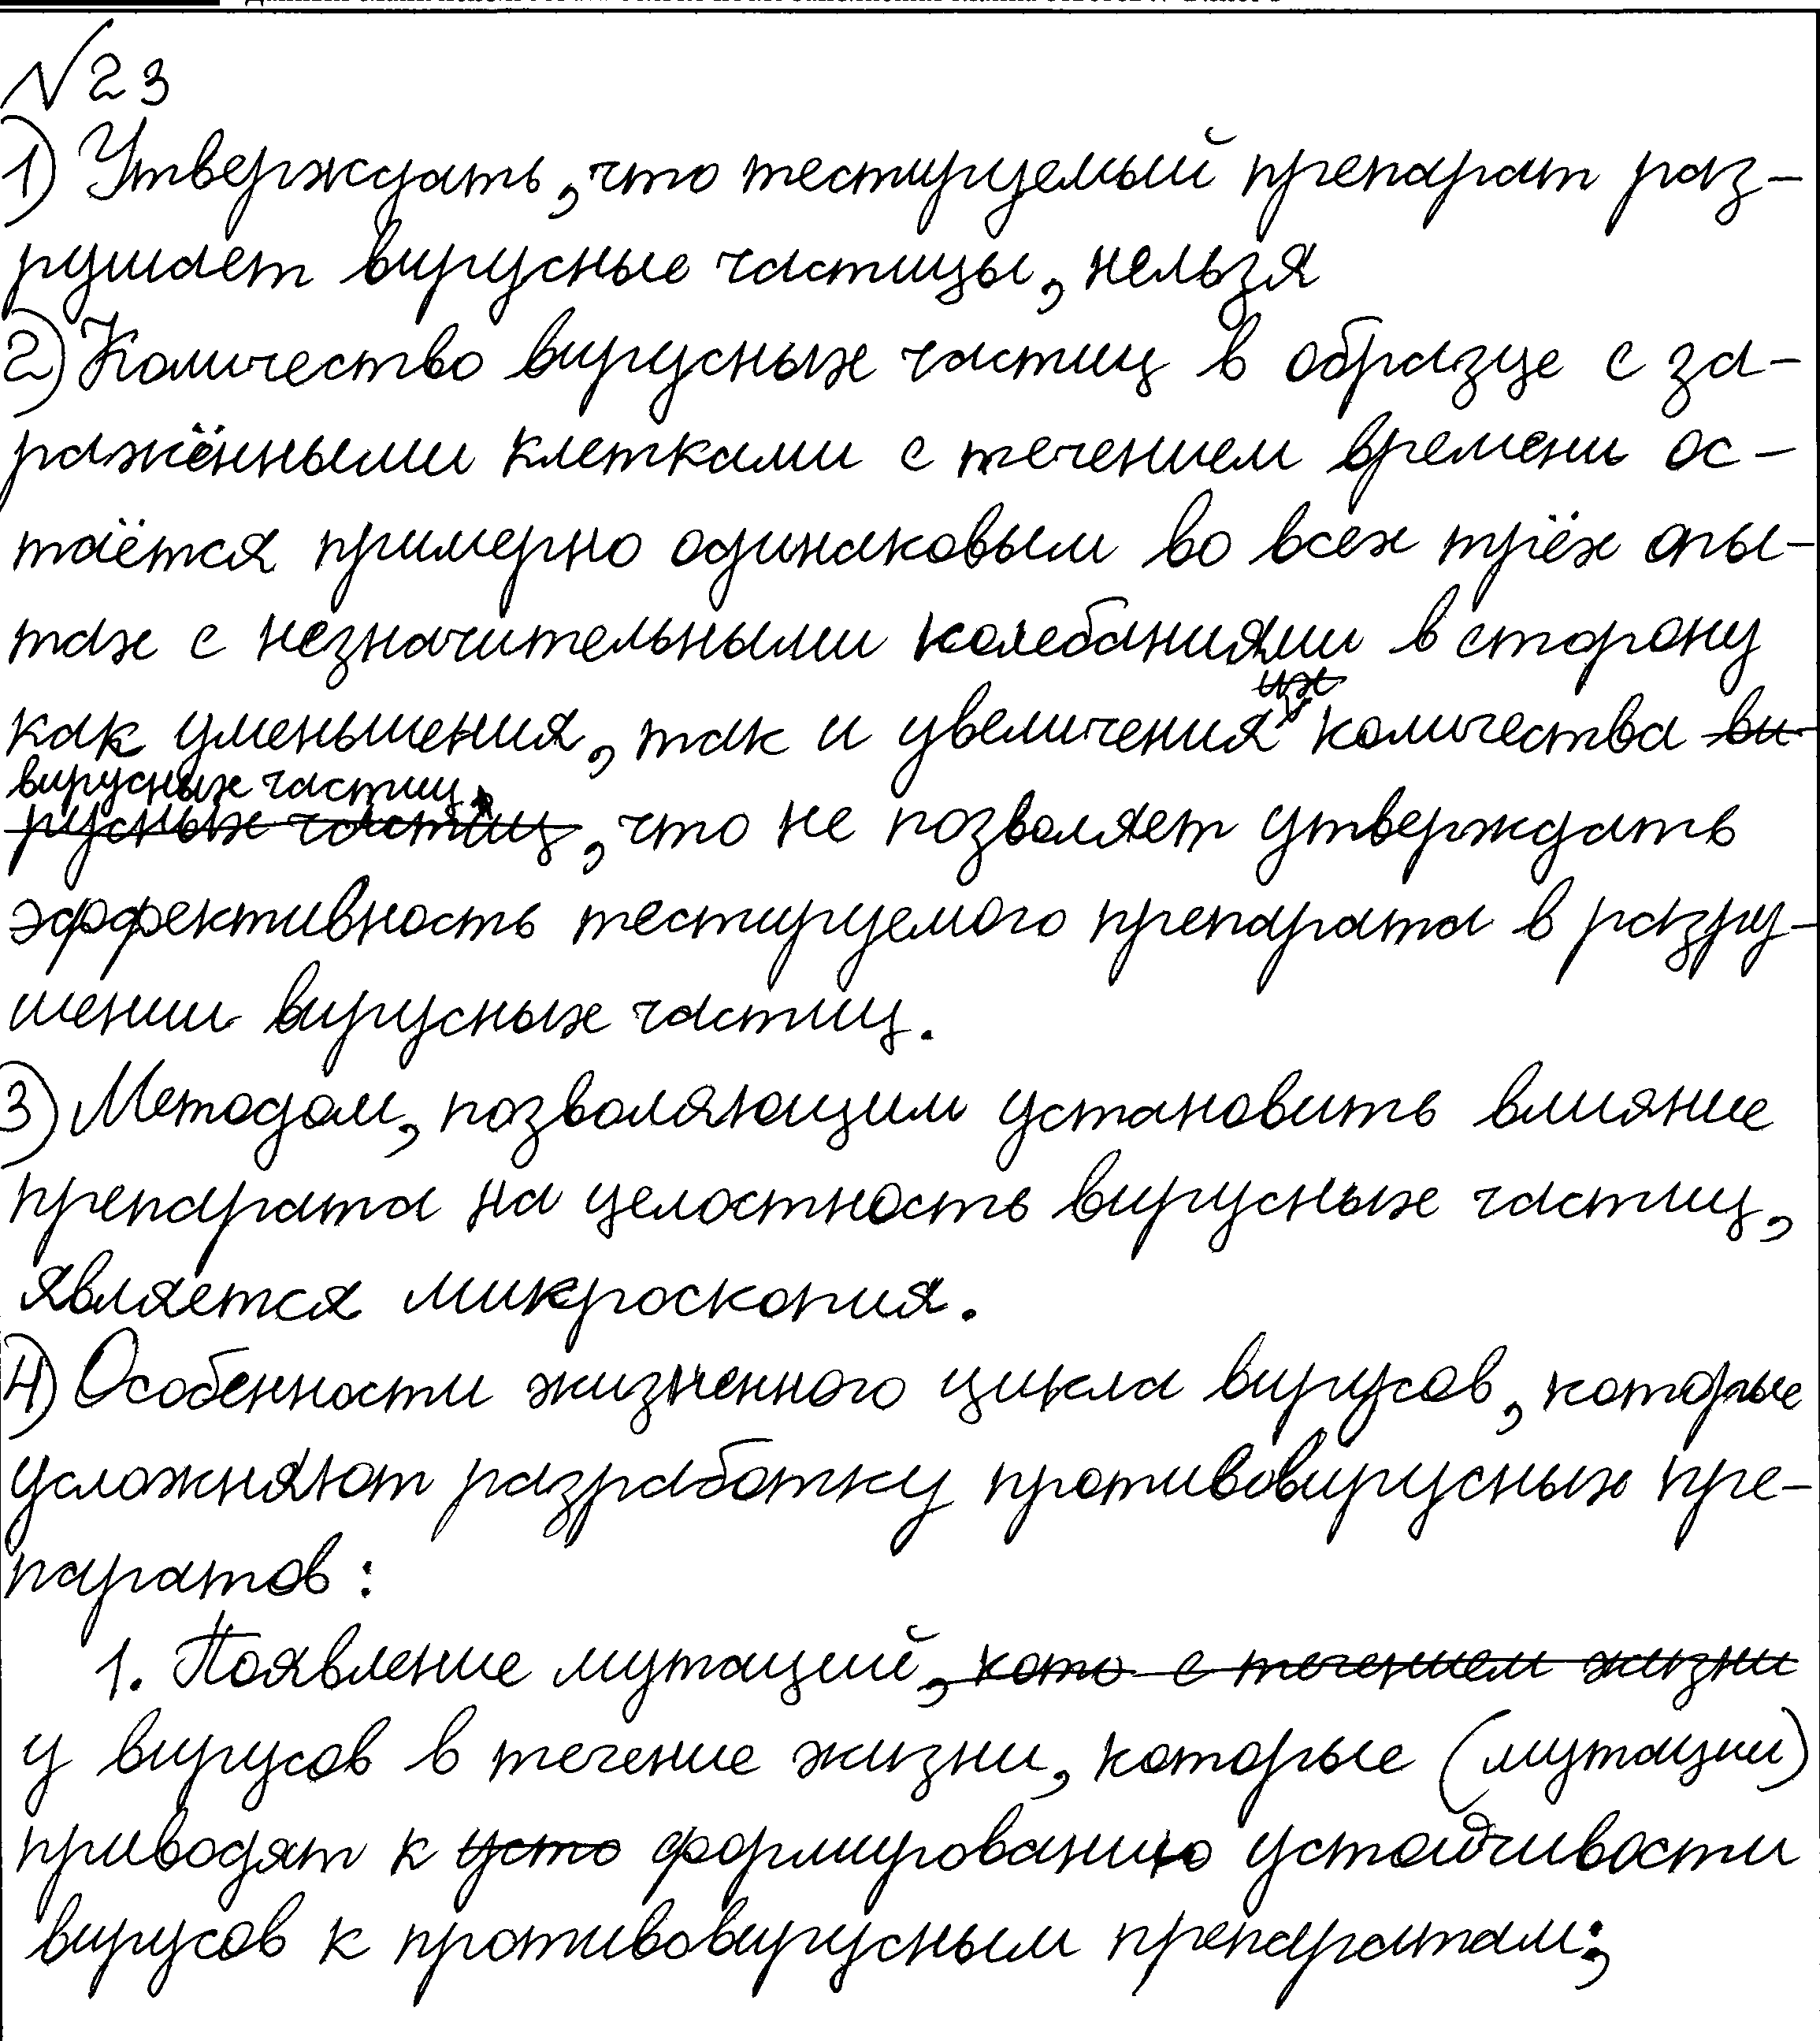 №23
1) Утверждать, что тестируемый препарат раз-
рушает вирусные частицы, нельзя
2) Количество вирусных частиц в образце с за-
ражёнными клетками с течением времени ос-
таётся примерно одинаковым во всех трёх опы-
тах с незначительными колебаниями в сторону
их
как уменьшения, так и увеличения количества ви-
вирусных частиц
русных частиц, что не позволяет утверждать
эффективность тестируемого препарата в разру-
шении вирусных частиц.
3) Методом, позволяющим установить влияние
препарата на целостность вирусных частиц,
является микроскопия.
4) Особенности жизненного цикла вирусов, которые
усложняют разработку противовирусных пре-
паратов:
1. Появление мутаций, кото с течением жизни
у вирусов в течение жизни, которые (мутации)
приводят к усто формированию устойчивости
вирусов к противовирусным препаратам;